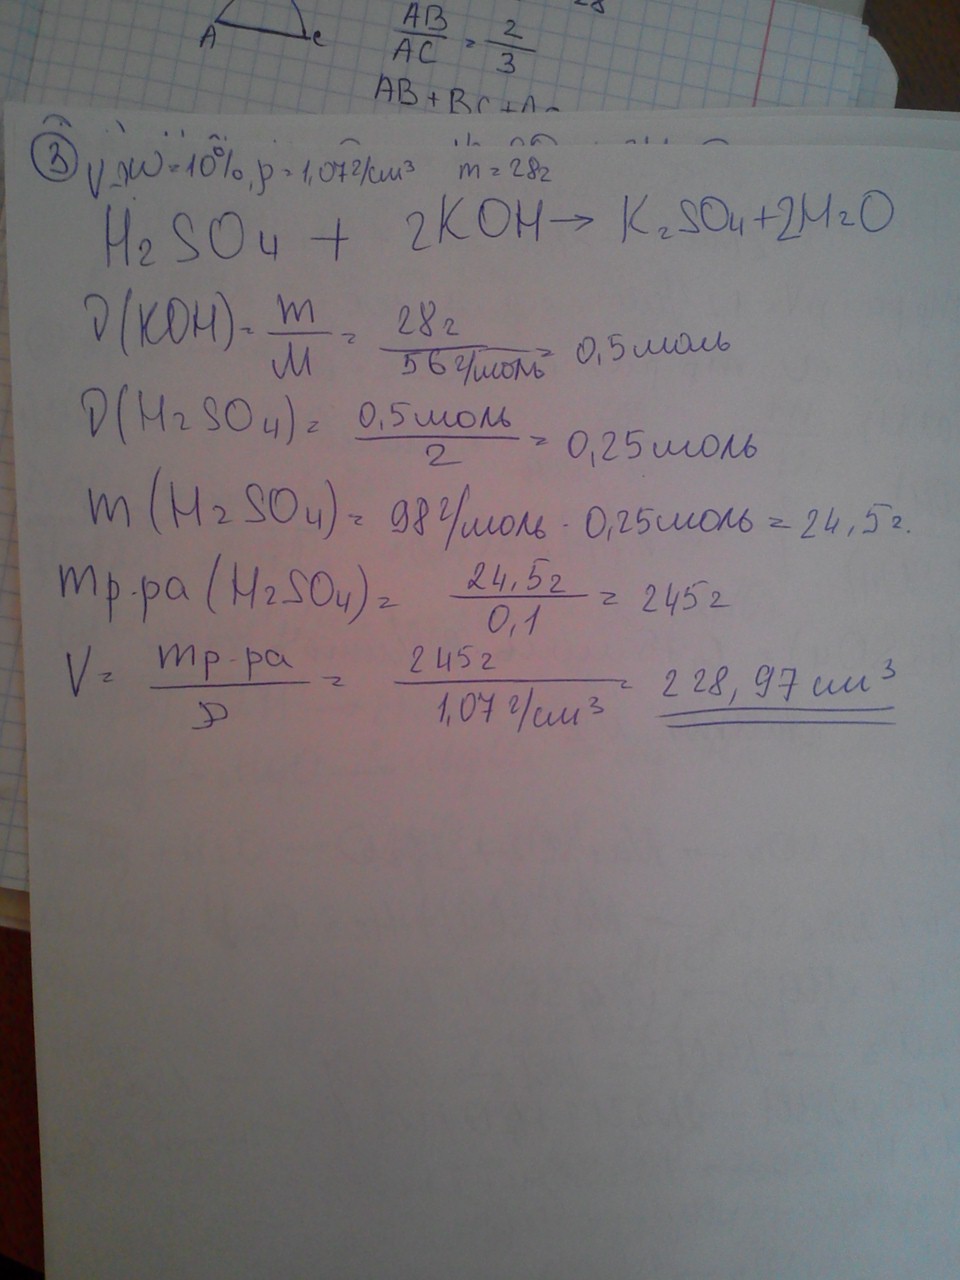 A C AB/AC = 2/3 28
AB + BC + A
3 V-? W = 10%, ρ = 1,07 г/см³ m = 28г
H₂SO₄ + 2KOH → K₂SO₄ + 2H₂O
ν(KOH) = m/M = 28г/56 г/моль = 0,5 моль
ν(H₂SO₄) = 0,5 моль/2 = 0,25 моль
m(H₂SO₄) = 98 г/моль · 0,25 моль = 24,5г.
mр-ра(H₂SO₄) = 24,5г/0,1 = 245г
V = mр-ра/ρ = 245г/1,07 г/см³ = 228,97 см³